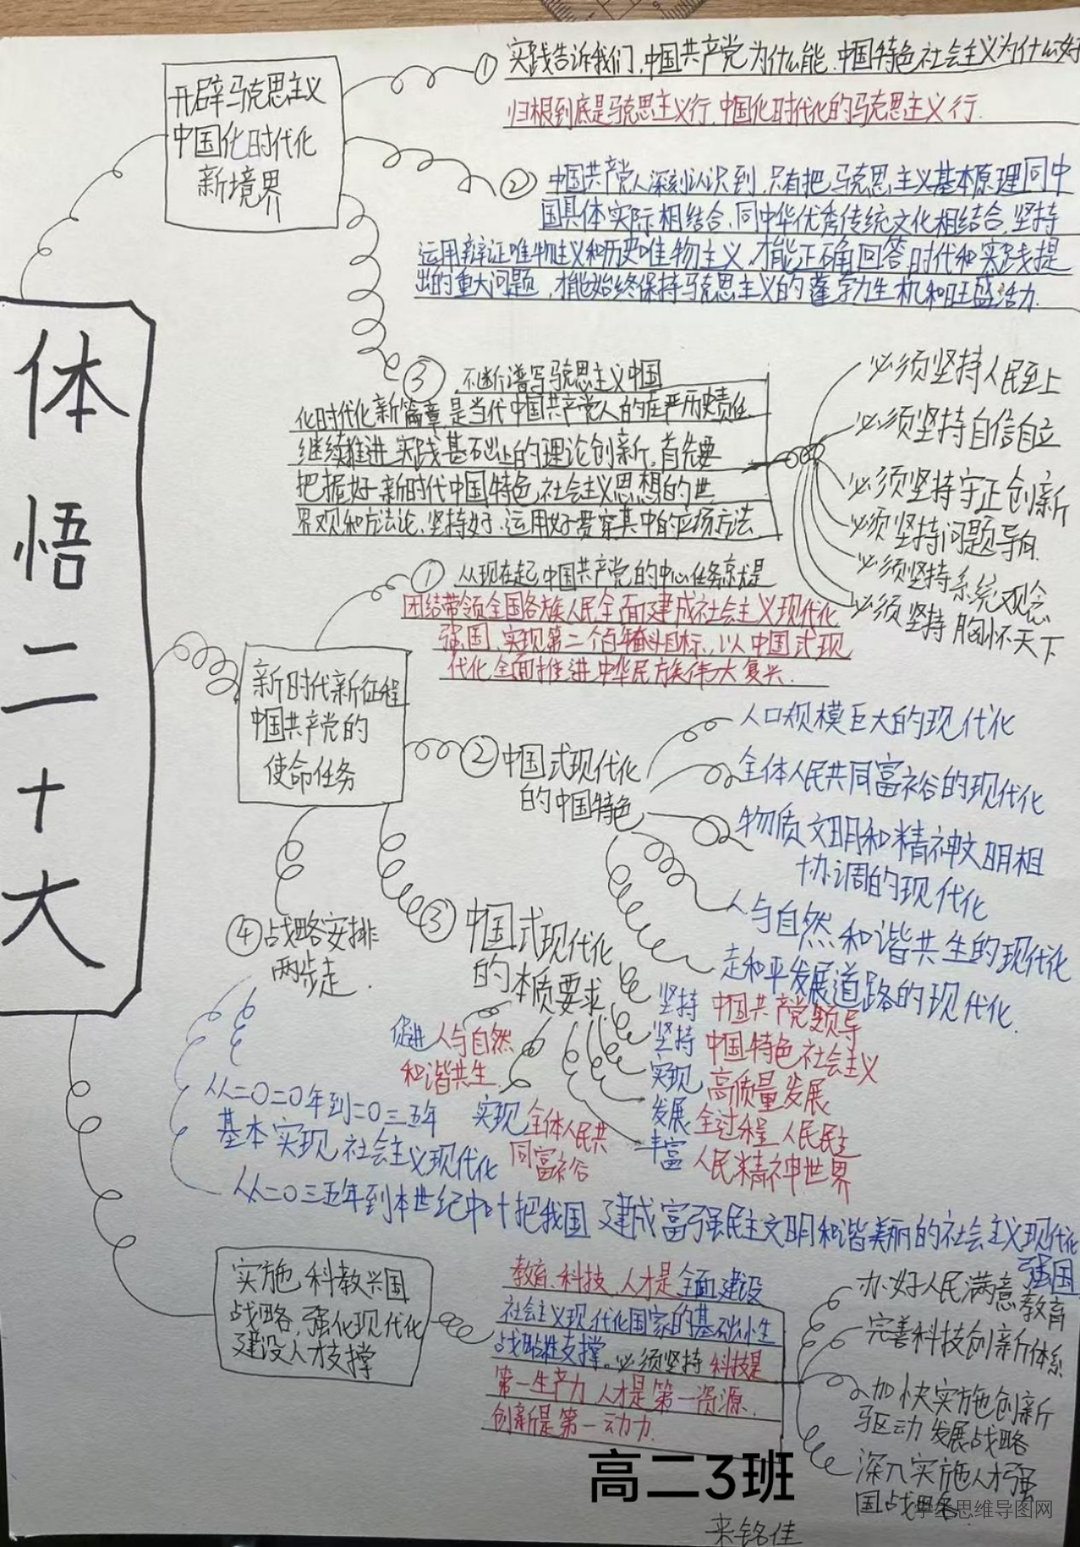 体悟二十大
开辟马克思主义
中国化时代化
新境界
① 实践告诉我们,中国共产党为什么能,中国特色社会主义为什么好
归根到底是马克思主义行,中国化时代化的马克思主义行.
② 中国共产党人深刻认识到,只有把马克思主义基本原理同中
国具体实际相结合,同中华优秀传统文化相结合,坚持
运用辩证唯物主义和历史唯物主义,才能正确回答时代和实践提
出的重大问题,才能始终保持马克思主义的蓬勃生机和旺盛活力.
③ 不断谱写马克思主义中国
化时代化新篇章,是当代中国共产党人的庄严历史责任
继续推进实践基础上的理论创新,首先要
把握好新时代中国特色社会主义思想的世
界观和方法论,坚持好、运用好贯穿其中的立场方法
必须坚持人民至上
必须坚持自信自立
必须坚持守正创新
必须坚持问题导向
必须坚持系统观念
必须坚持胸怀天下
新时代新征程
中国共产党的
使命任务
① 从现在起中国共产党的中心任务就是
团结带领全国各族人民全面建成社会主义现代化
强国、实现第二个百年奋斗目标,以中国式现
代化全面推进中华民族伟大复兴.
②中国式现代化
的中国特色
人口规模巨大的现代化
全体人民共同富裕的现代化
物质文明和精神文明相
协调的现代化
人与自然和谐共生的现代化
走和平发展道路的现代化.
③中国式现代化
的本质要求
坚持 中国共产党领导
坚持 中国特色社会主义
实现 高质量发展
发展 全过程人民民主
丰富 人民精神世界
实现全体人民共
同富裕
促进人与自然
和谐共生
④战略安排
两步走.
从二〇二〇年到二〇三五年
基本实现社会主义现代化
从二〇三五年到本世纪中叶把我国建成富强民主文明和谐美丽的社会主义现代化
强国
实施科教兴国
战略,强化现代化
建设人才支撑
教育、科技、人才是全面建设
社会主义现代化国家的基础性
战略性支撑。必须坚持科技是
第一生产力 人才是第一资源.
创新是第一动力.
办好人民满意教育
完善科技创新体系
加快实施创新
驱动发展战略
深入实施人才强
国战略
高二3班
来铭佳
思维导图网